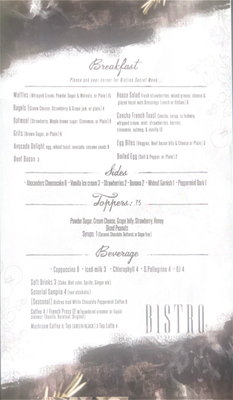 Breakfast
Please ask your server for Bistros Secret Menu...
Waffles (Whipped Cream, Powder Sugar & Walnuts, or Plain)
Bagels (Cream Cheese, Strawberry & Grape jam, or plain) 4
Oatmeal (Strawberry, Maple brown sugar, Cinnamon, or Plain)
Grits (Brown Sugar, or Plain)
Avocado Delight egg, wheat toast, avocado, sesame seeds
Beef Bacon 3
House Salad fresh strawberries, mixed greens, cheese &
glazed
Concha French Toast
whipped cream, mint, strawberries, berries,
cinnamon, nutmeg, & vanilla 12
Egg Bites
Boiled Egg (Salt & Pepper, or Plain)
Sides
• Alexanders Cheesecake 8 • Vanilla Ice cream 3 • Strawberries 2 • Banana 2 • Walnut Garnish 1 • Peppermint Bark 1
Toppers: .75
Powder Sugar, Cream Cheese, Grape Jelly, Strawberry, Honey
Sliced Peanuts
Syrups: 1 (Caramel, Chocolate, Buttered, or Sugar Free)
Beverage
• Cappuccino 6 • Iced milk 3 • Chlorophyll 4 • S.Pellegrino 4 •
Soft Drinks 3 (Coke, Diet coke, Sprite, Ginger ale)
Sangria 4 (non alcoholic)
(Seasonal) Bistros Iced White Chocolate Peppermint Coffee
Coffee 4 / French Press 12 w/ creamer or liquid
creamer (Vanilla, Hazelnut, Original)
Mushroom Coffee 4, Tea Tea Latte
BISTRO